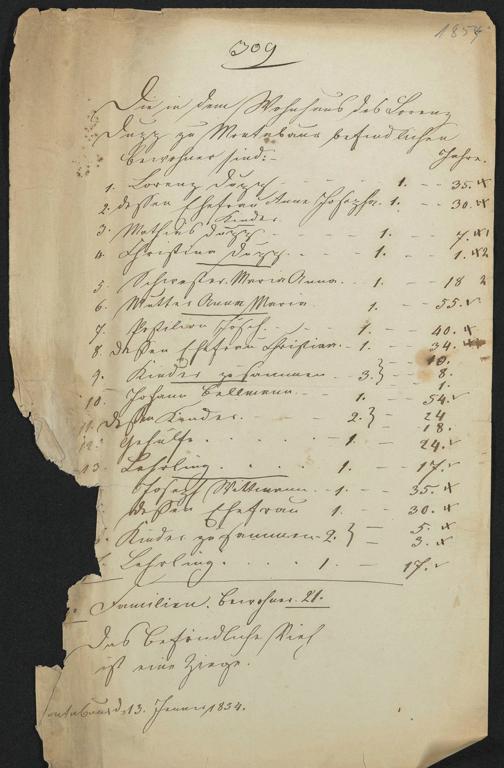 1854
309
Die in dem Wohnhaus des Lorenz
Dupp zu Montabaur befindlichen
Bewohner sind:-
Jahre.
1. Lorenz Dupp - - - 1. - - 35.
2. dessen Ehefrau Anne Josepha. 1. - - 30.
Kinder
3. Mathias Dupp - - - 1. - - 7.
4. Christina Dupp - - 1. - - 1.
5. Schwester Maria Anna. - - 1. - 18 2
6. Mutter Anna Maria - - 1. - - 55.
7. 1. - - 40.
8. dessen Ehefrau Christian. - 1. - - 34.
10.
9. Kinder zusammen - - 3.} - 8.
1.
10. Johann Bellmann - - 1. - 54.
11. dessen Kinder. 2.} - 24
18.
12. Gehülfe . . . . 1. - 24.
13. Lehrling . . . . 1. - 17.
Joseph Wittmann - 1. - - 35.
dessen Ehefrau 1. - - 30.
Kinder zusammen - 2.} - 5.
3.
Lehrling . . . . 1. - 17.
Familien. Bewohner 21.
Das befindliche Vieh
ist eine Ziege.
13. Jenner 1854.